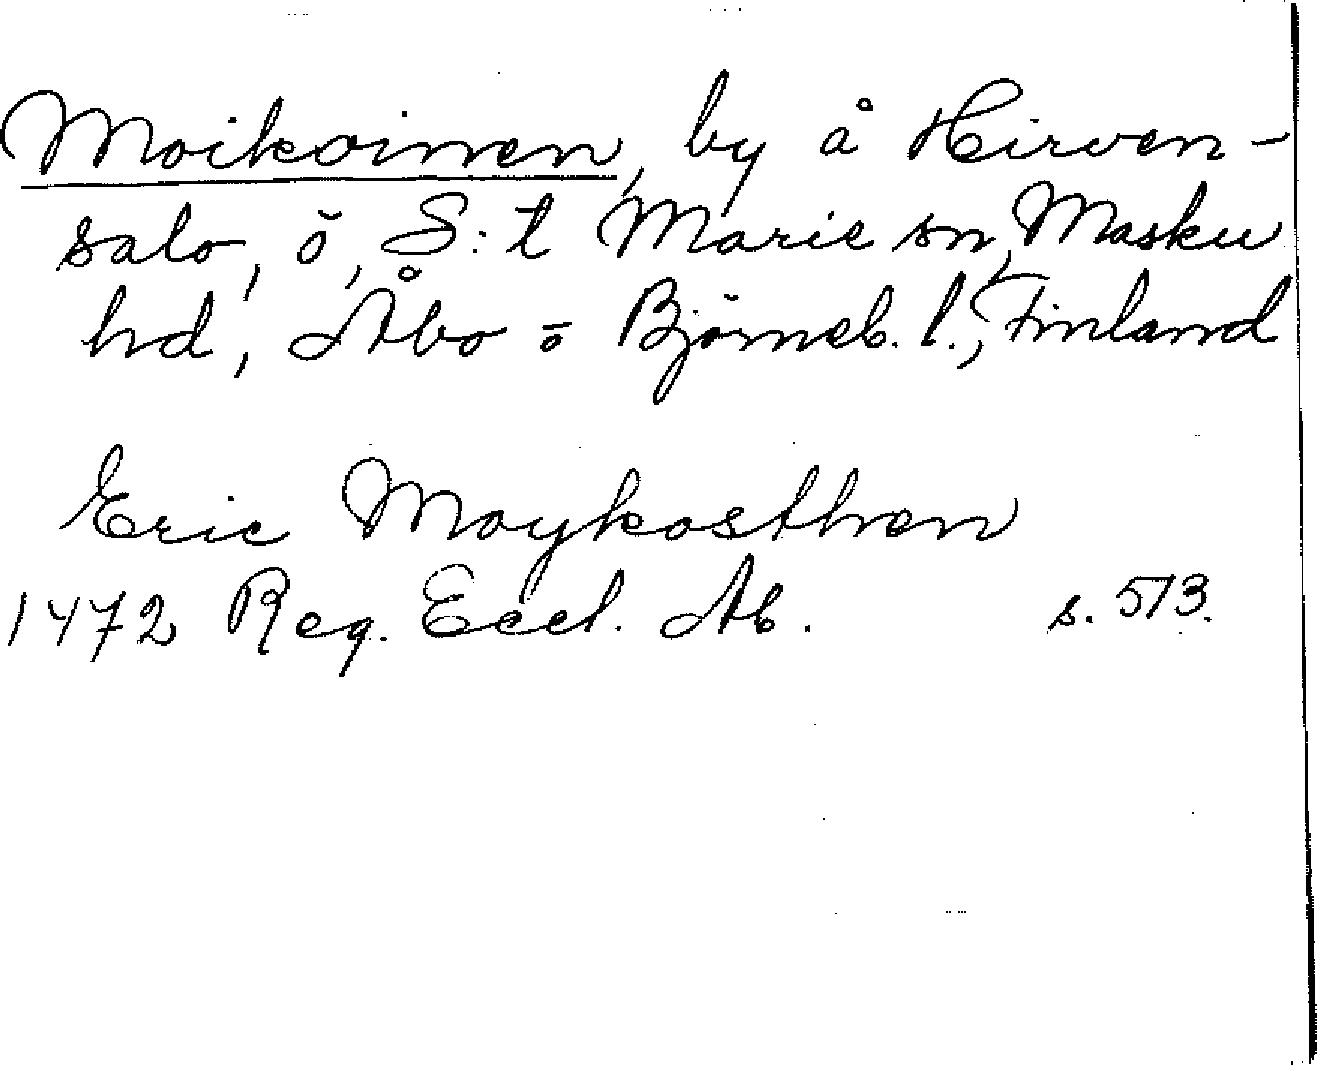 Moikoinen, by å Hirven-
salo, ö, S:t Marie sn, Masku
hd, Åbo o Björneb. l., Finland
Eric Moykosthen
1472 Reg. Eccl. Ab. s. 513.